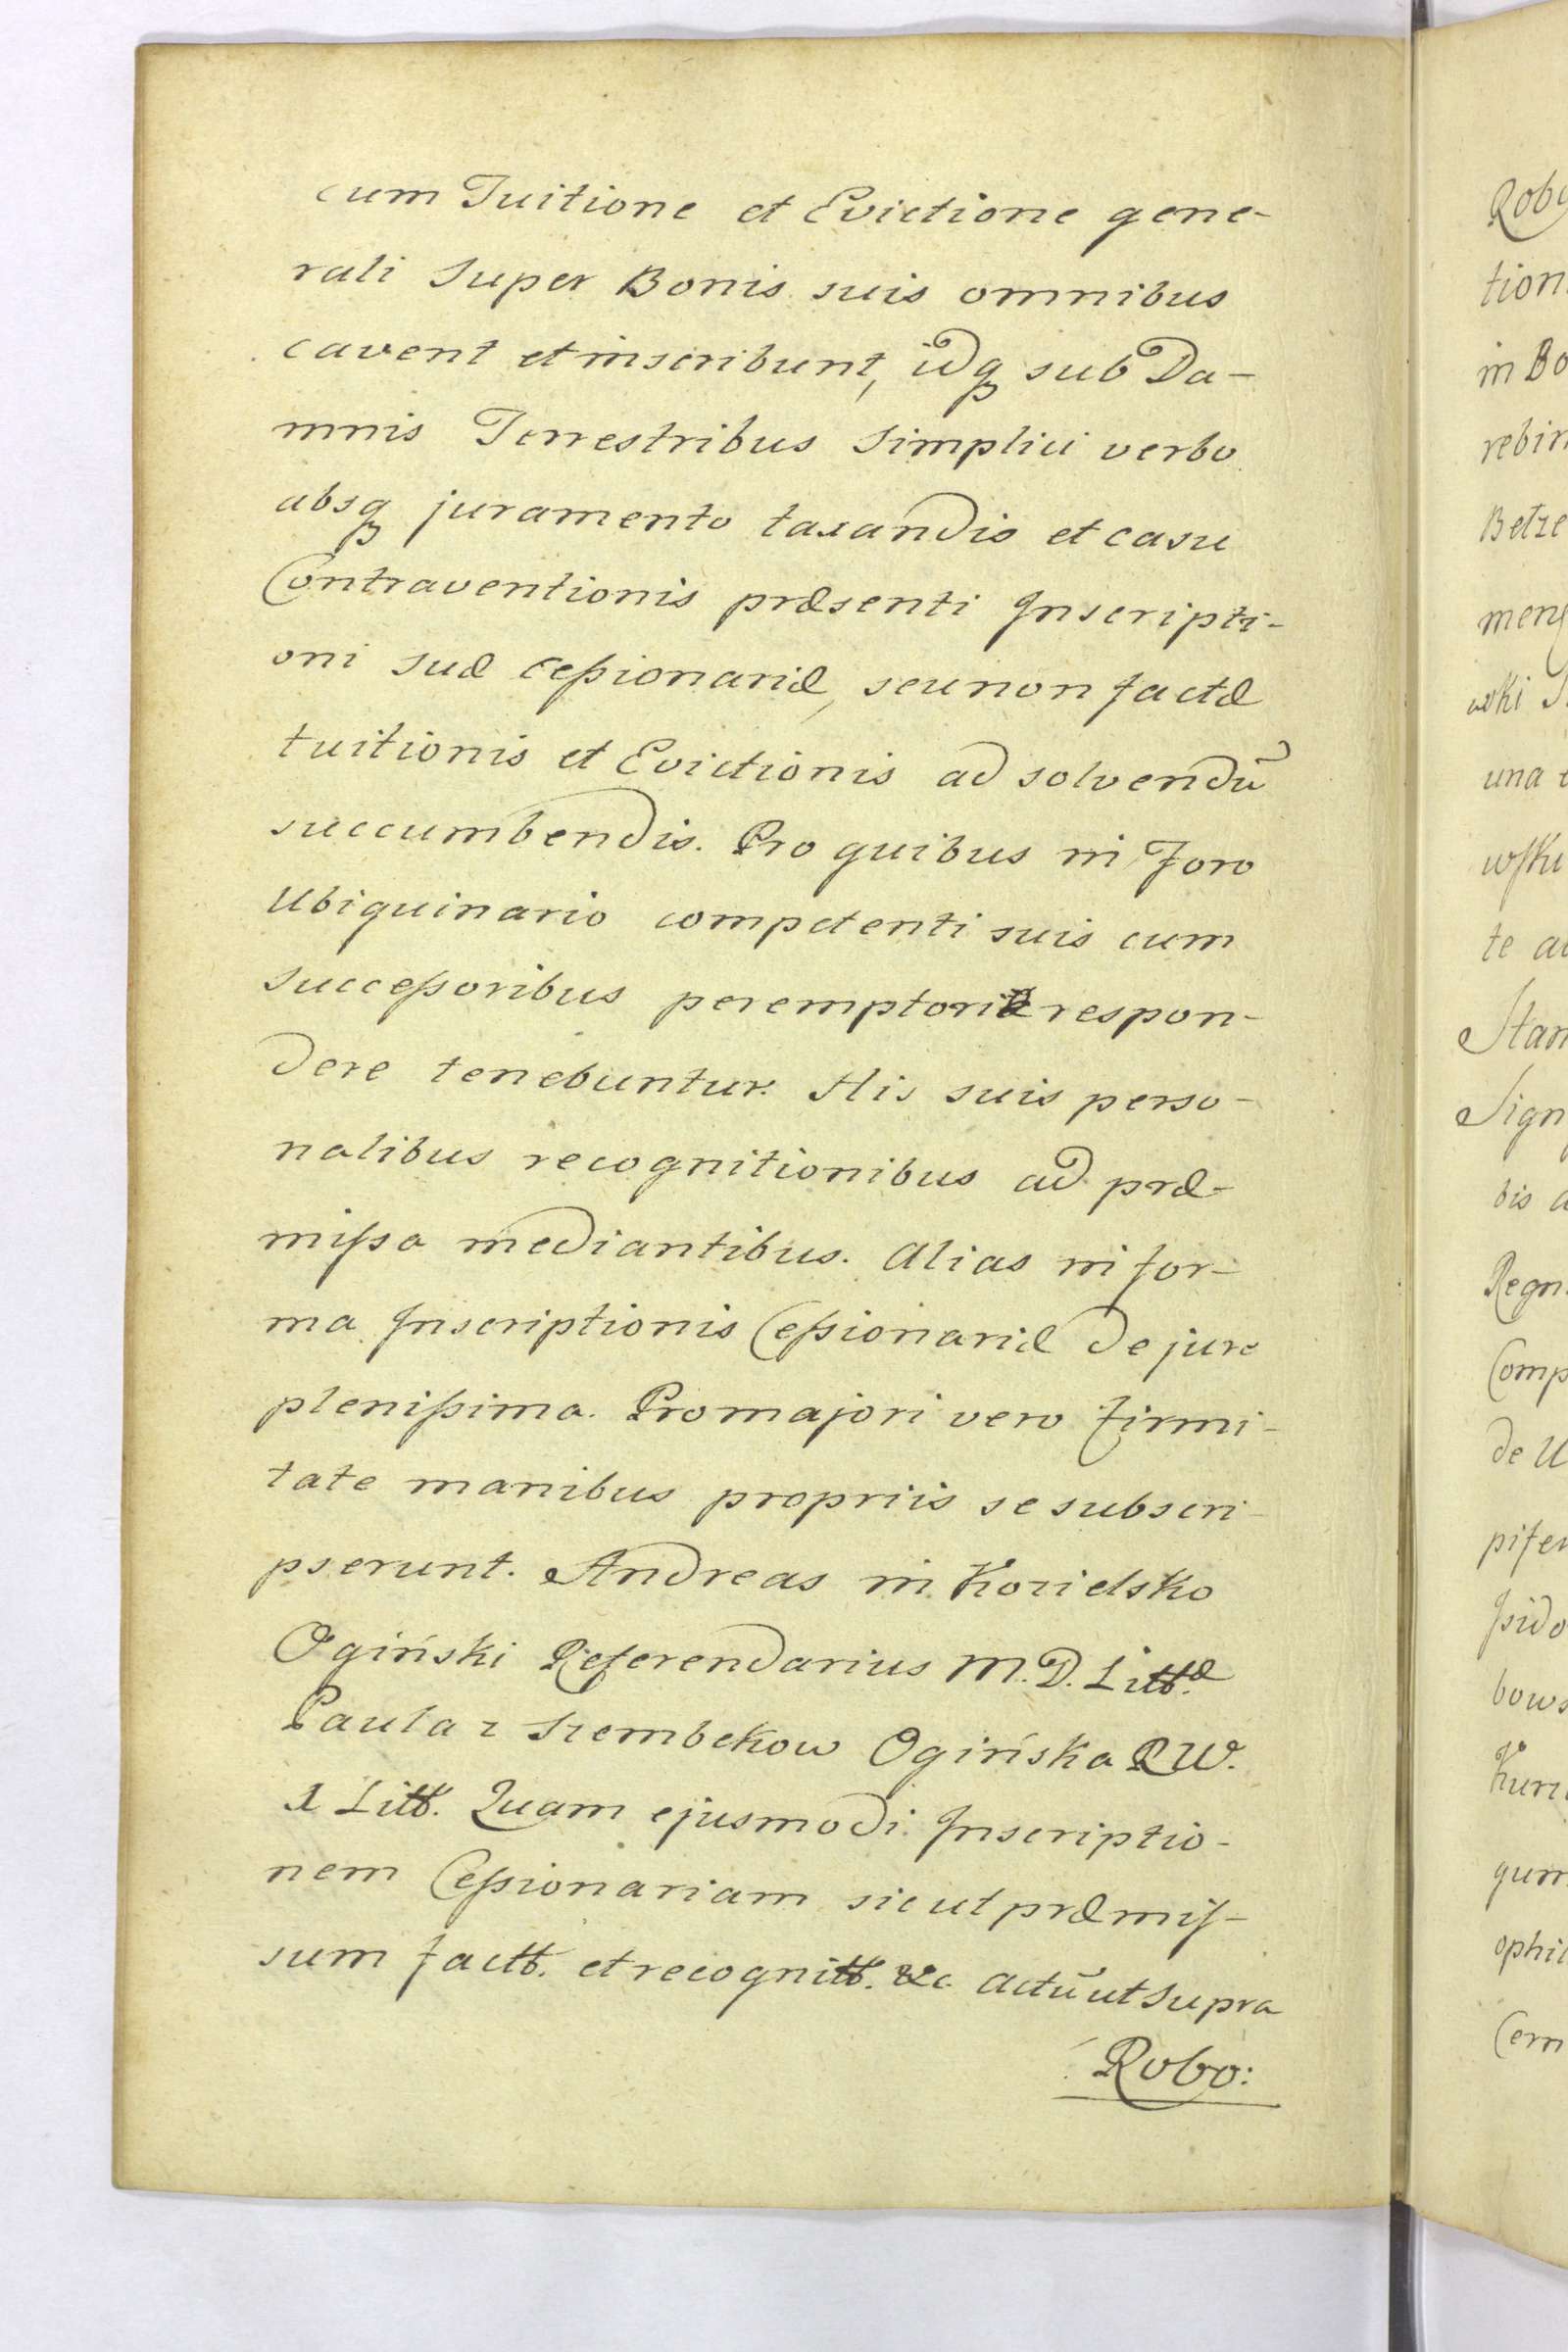 cum Tuitione et Evictione gene-
rali super Bonis suis omnibus
cavent et inscribunt, idq sub Da-
mnis Terrestribus simplici verbo
absq juramento taxandis et casu
Contraventionis præsenti Inscripti-
oni suæ cessionariæ, seu non factæ
tuitionis et Evictionis ad solvendū
succumbendis. Pro quibus in Foro
Ubiquinario competenti suis cum
successoribus peremptorie respon-
dere tenebuntur. His suis perso-
nalibus recognitionibus ad præ-
missa mediantibus. Alias in for-
ma Inscriptionis Cessionariæ de jure
plenissima. Pro majori vero firmi-
tate manibus propriis se subscri-
pserunt. Andreas in Kozielsko
Ogiński Referendarius M. D. Littæ
Paula z Szembekow Ogińska R W.
X Litt. Quam ejusmodi Inscriptio-
nem Cessionariam sicut præmis-
sum factt. et recognitt. &c. Actū ut supra
Robo:
Robo
tion
in Bo
rebin
Betze
wki S
una
te a
Stan
Sign
bis a
Regn
Comp
de U
bows
Kurz
qum
ophi
Cern